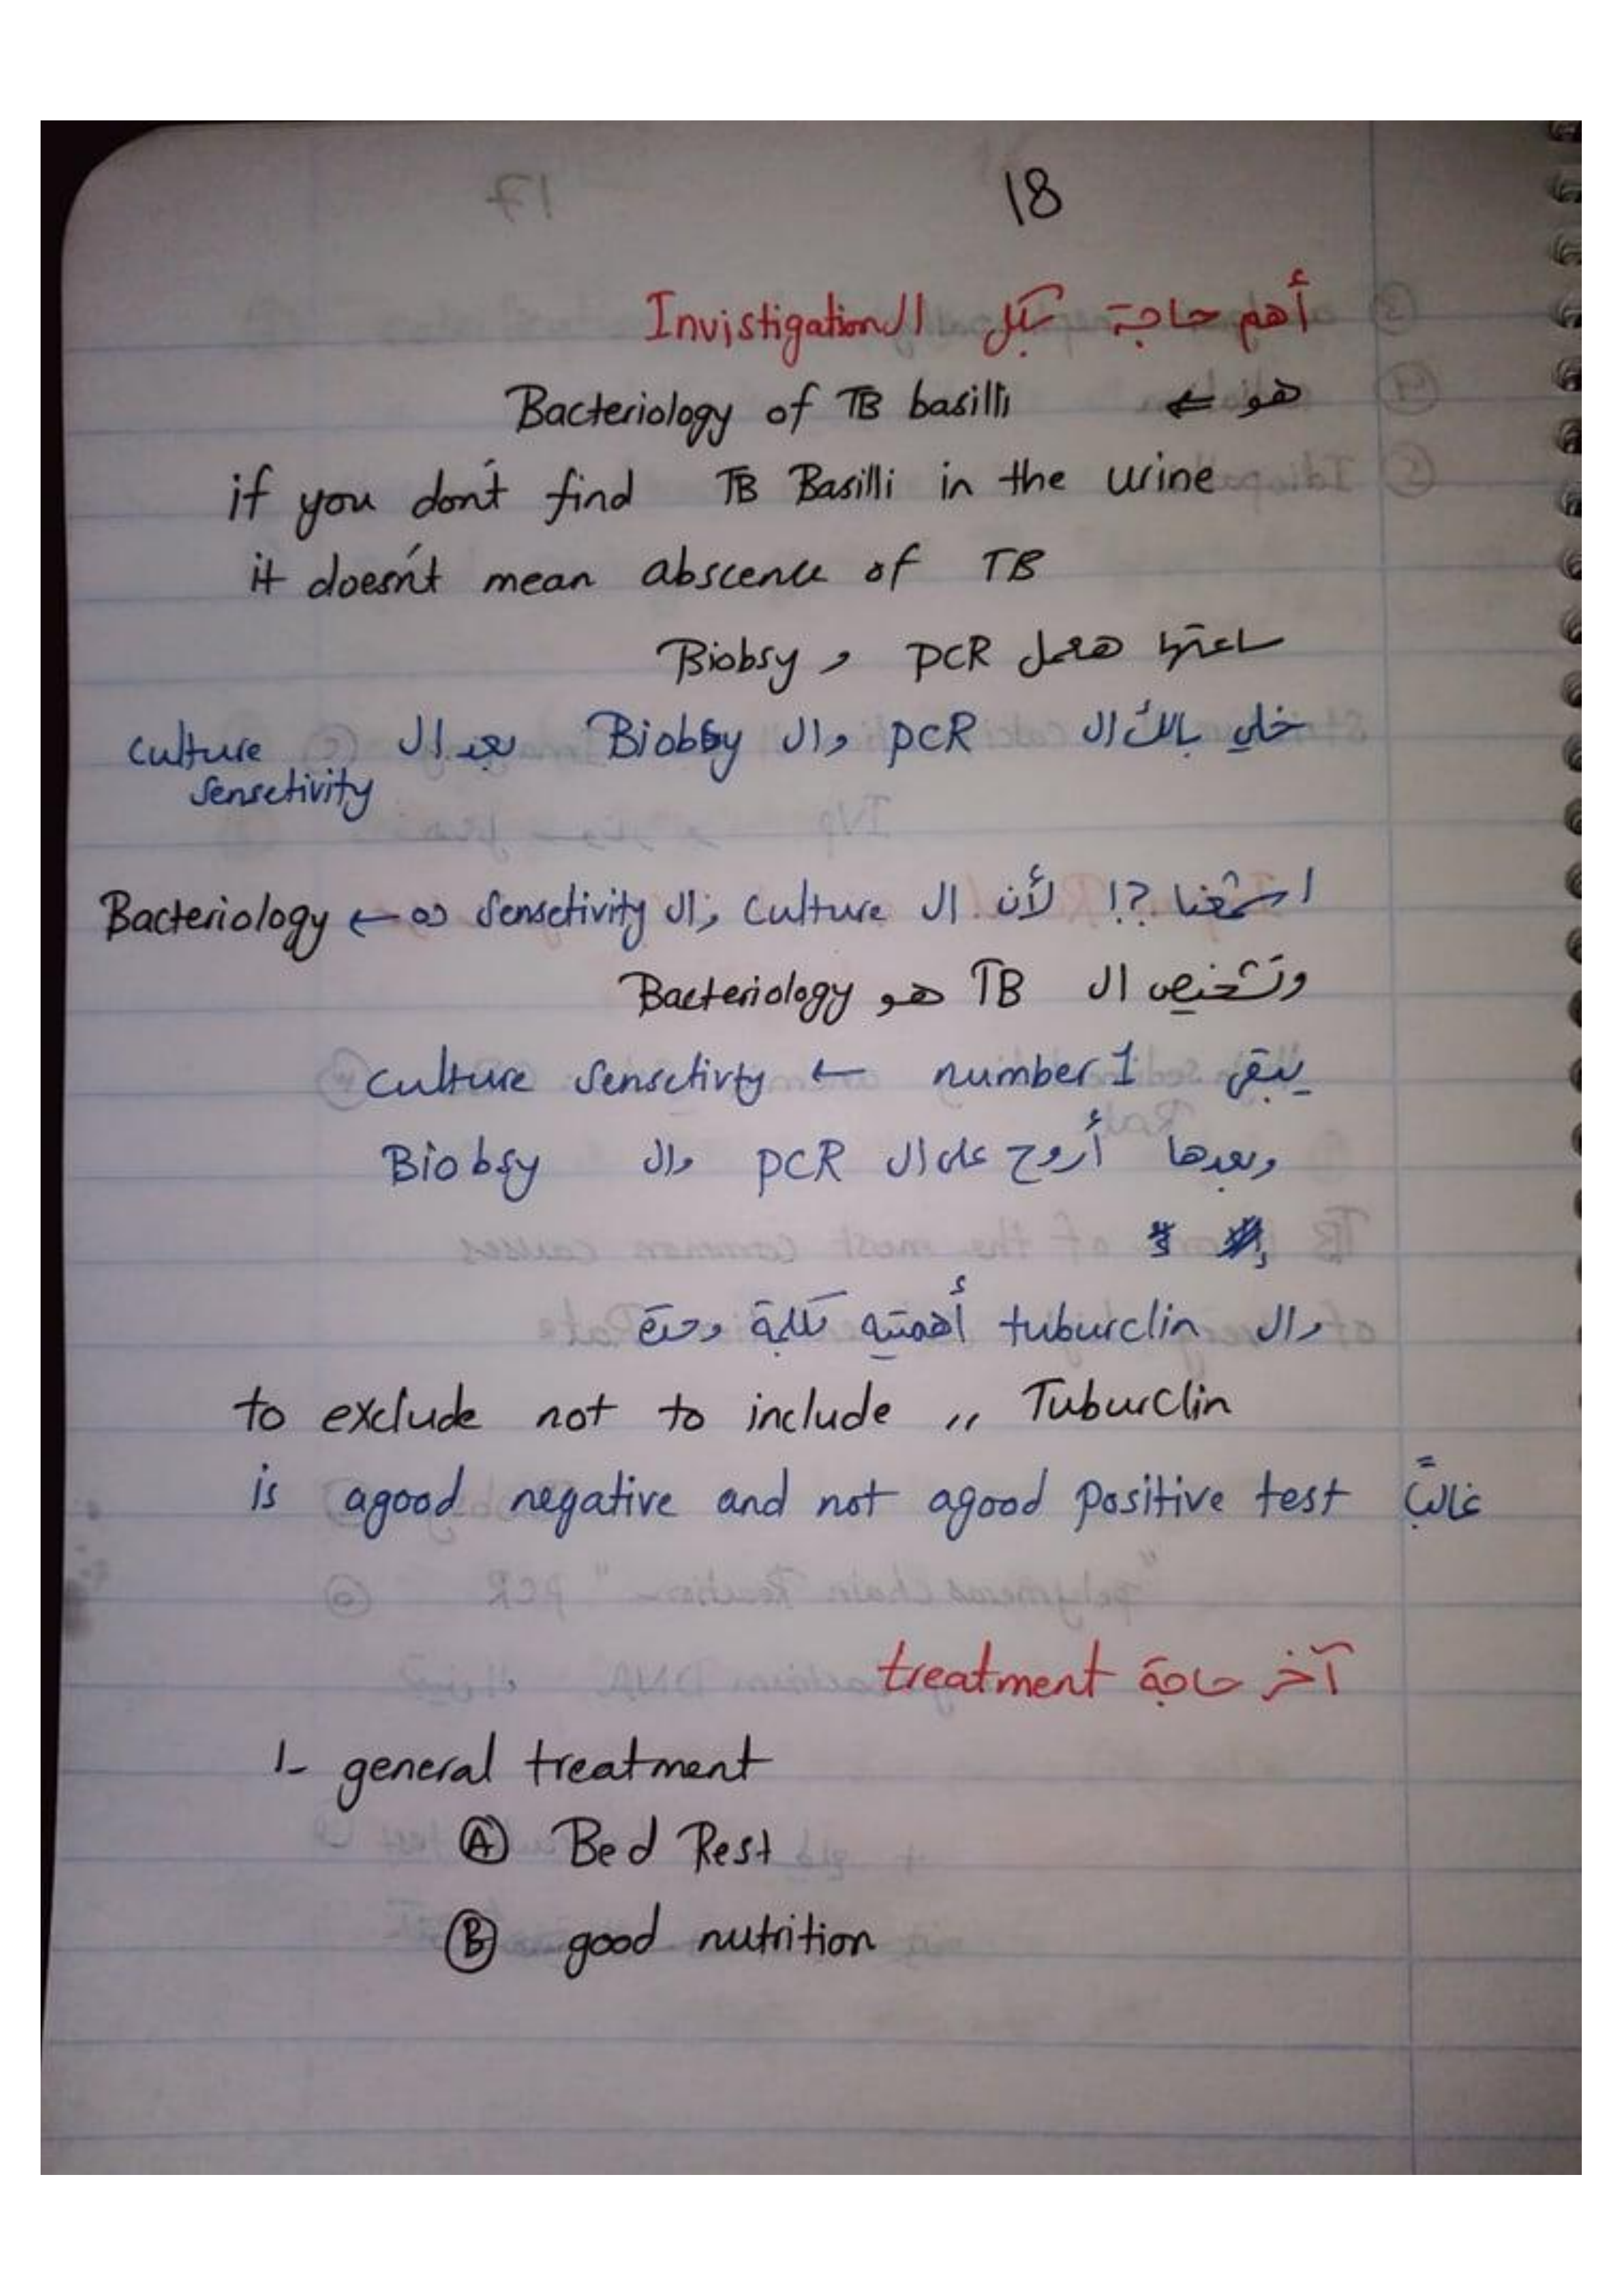 18
أهم حاجة بكل ال Invistigation
هو ⇐ Bacteriology of TB basilli
if you don't find TB Basilli in the urine
it doesn't mean abscence of TB
ساعتها هعمل PCR و Biobsy
خلي بالك ال PCR وال Biobsy بعد ال culture
Sensetivity
اشمعنا ?! لأن ال Culture وال Sensetivity ده ← Bacteriology
وتشخيص ال TB هو Bacteriology
يبقى number 1 ← Culture Sensetivty
وبعدها أروح على ال PCR وال Biobsy
وال tuburclin أهمتيه كلمة وحدة
to exclude not to include ,, Tuburclin
is agood negative and not agood positive test غالبًا
آخر حاجة treatment
1- general treatment
Ⓐ Bed Rest
Ⓑ good nutrition